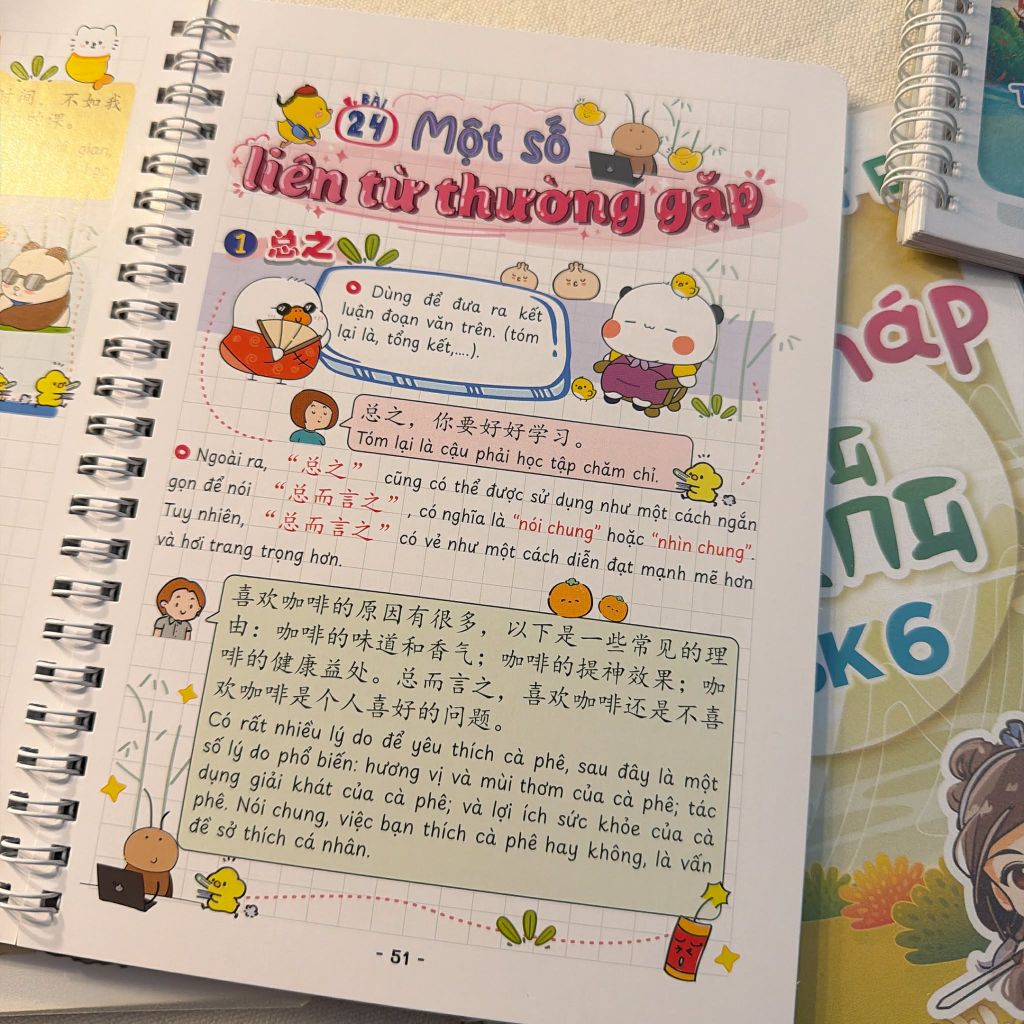 时间，不如我
gian,
BÀI
24 Một số
liên từ thường gặp
1 总之
Dùng để đưa ra kết
luận đoạn văn trên. (tóm
lại là, tổng kết,....).
总之，你要好好学习。
Tóm lại là cậu phải học tập chăm chỉ.
Ngoài ra, “总之” cũng có thể được sử dụng như một cách ngắn
gọn để nói “总而言之”, có nghĩa là “nói chung” hoặc “nhìn chung”.
Tuy nhiên, “总而言之” có vẻ như một cách diễn đạt mạnh mẽ hơn
và hơi trang trọng hơn.
喜欢咖啡的原因有很多，以下是一些常见的理
由：咖啡的味道和香气；咖啡的提神效果；咖
啡的健康益处。总而言之，喜欢咖啡还是不喜
欢咖啡是个人喜好的问题。
Có rất nhiều lý do để yêu thích cà phê, sau đây là một
số lý do phổ biến: hương vị và mùi thơm của cà phê; tác
dụng giải khát của cà phê; và lợi ích sức khỏe của cà
phê. Nói chung, việc bạn thích cà phê hay không, là vấn
đề sở thích cá nhân.
- 51 -
háp
SK 6